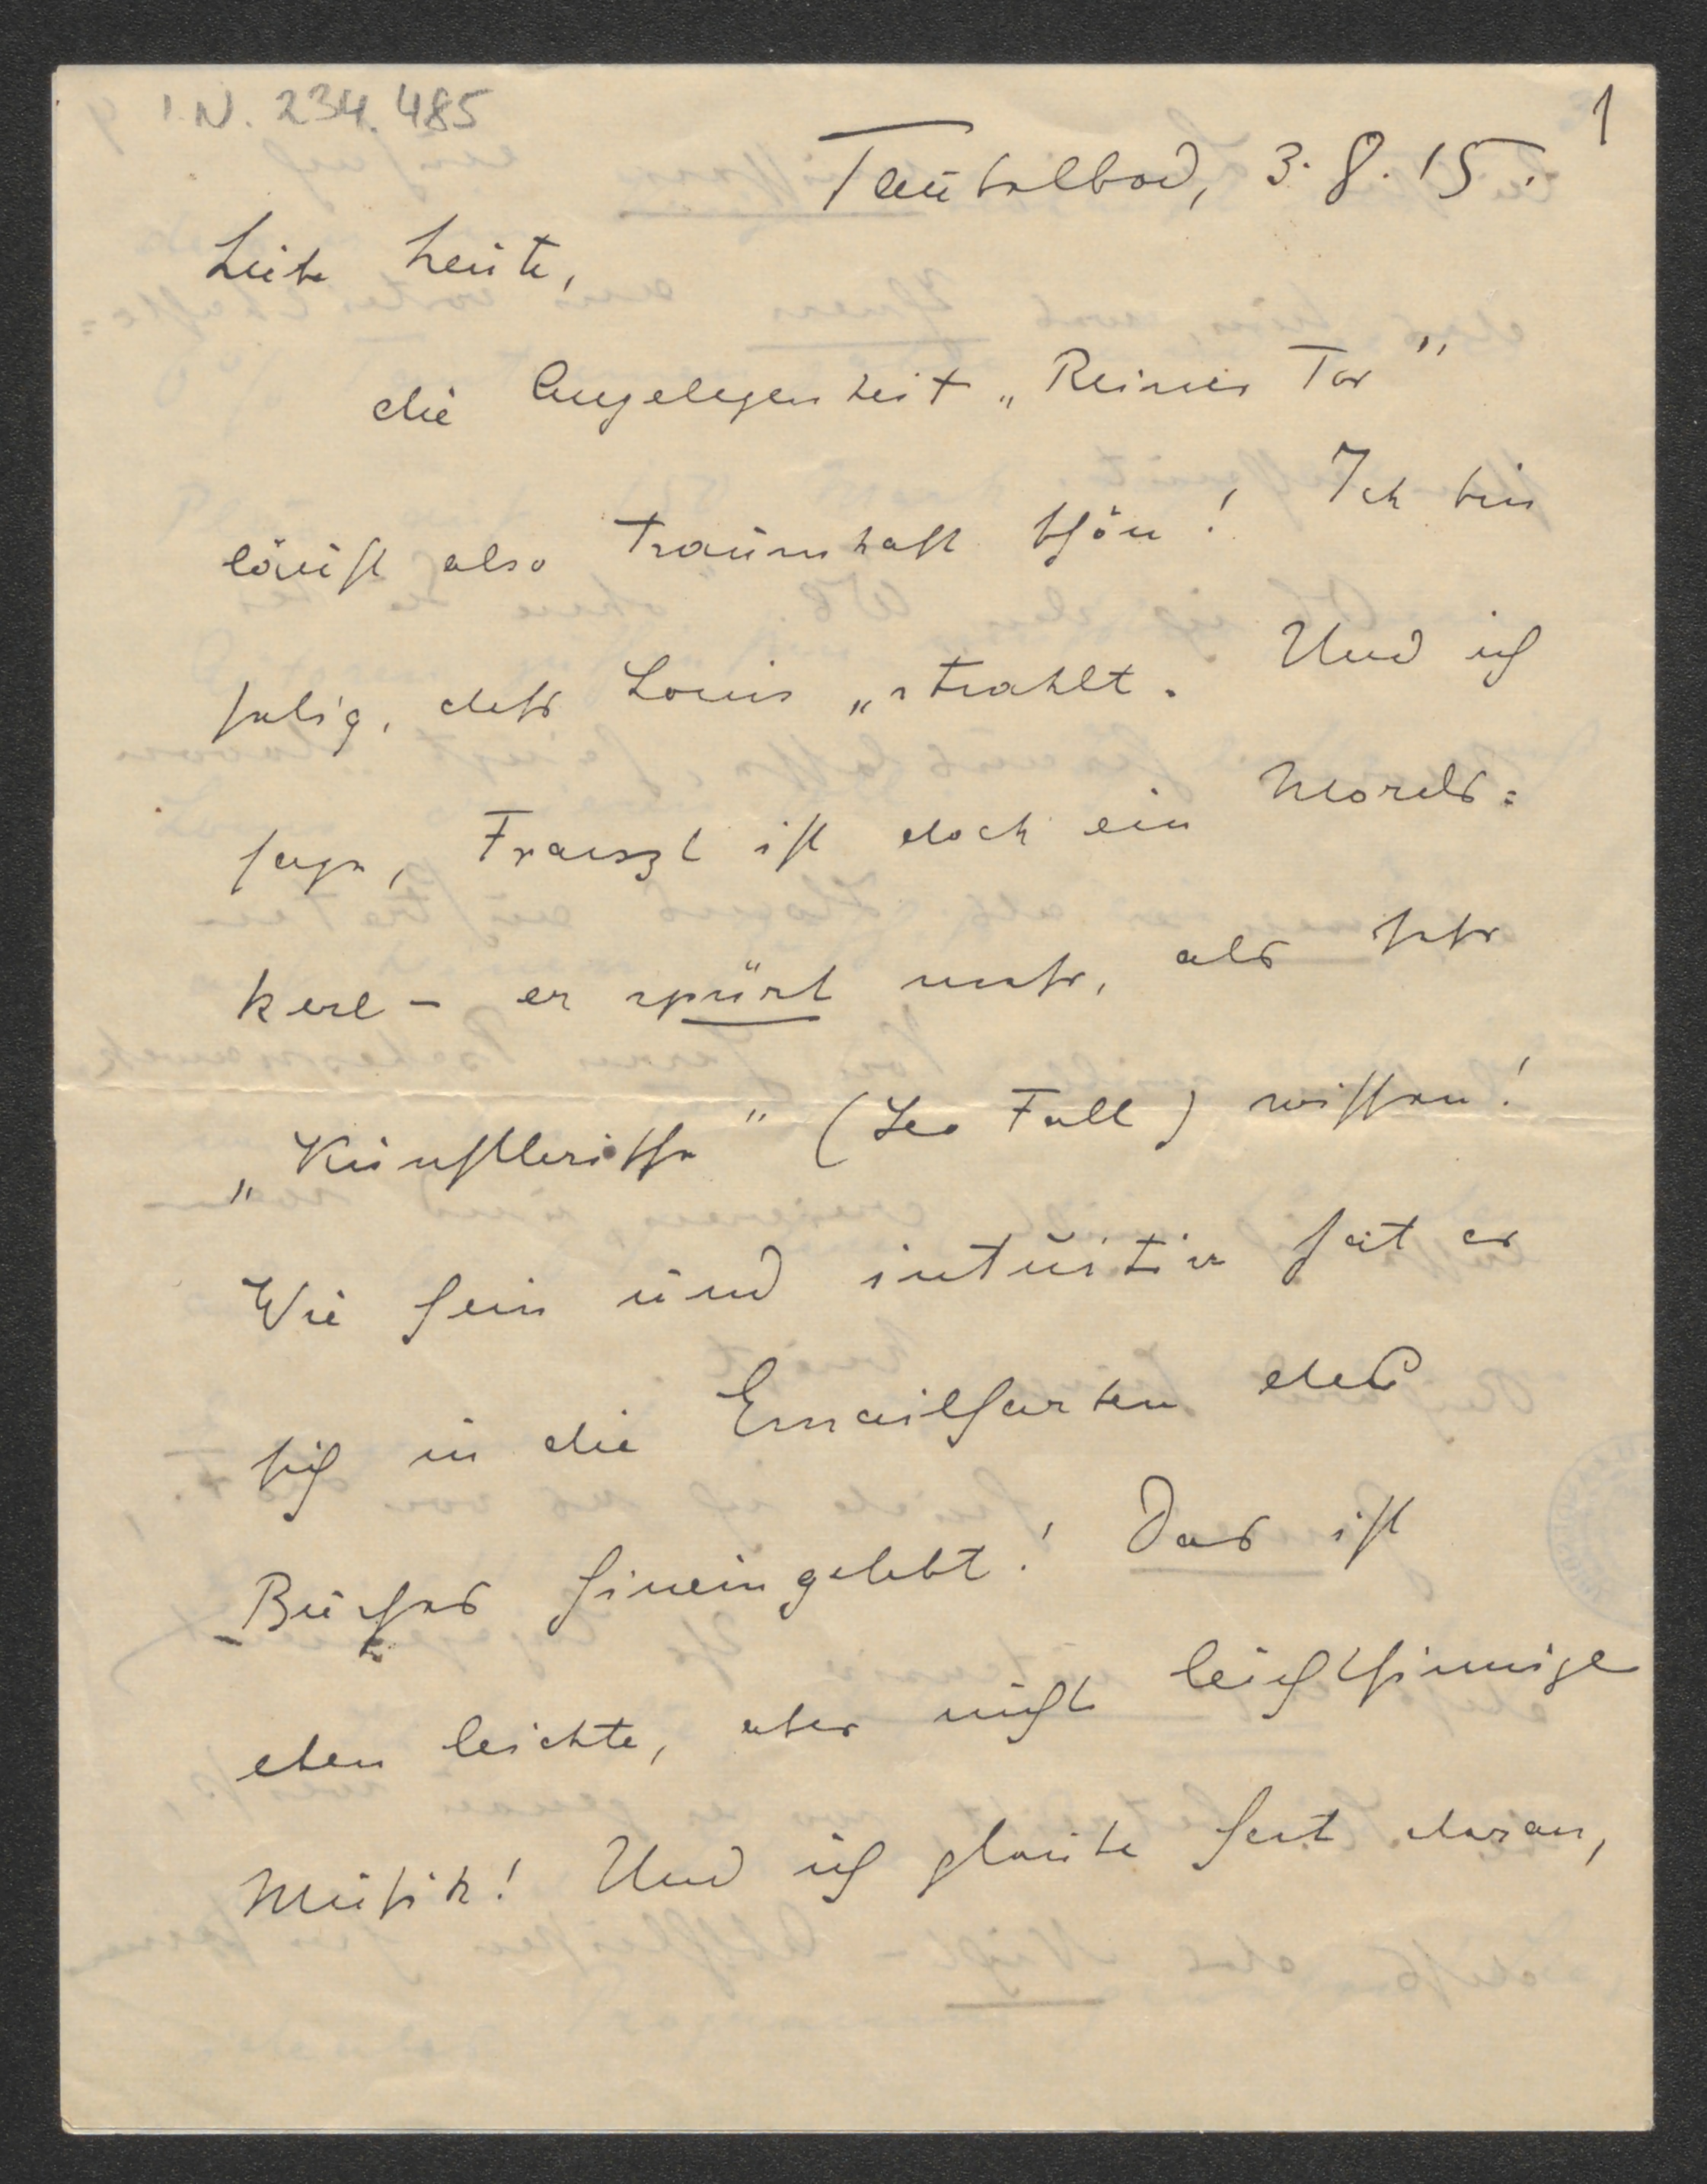 I.N. 234.485
1
Tauhalbad, 3. 8. 15.
Liebe Leute,
die Angelegenheit „Reiner Tor"
läuft also traumhaft schön! Ich bin
selig, dass Louis „strahlt. Und ich
sage, Franzl ist doch ein Mords=
kerl – er spürt mehr, als sehr
„Künstlerische" (Leo Fall) wissen!
Wie fein und intuitiv hat er
sich in die Emailfarben des
Buches hineingelebt! Das ist
eben leichte, aber nicht leichtsinnige
Musik! Und ich glaube fest daran,